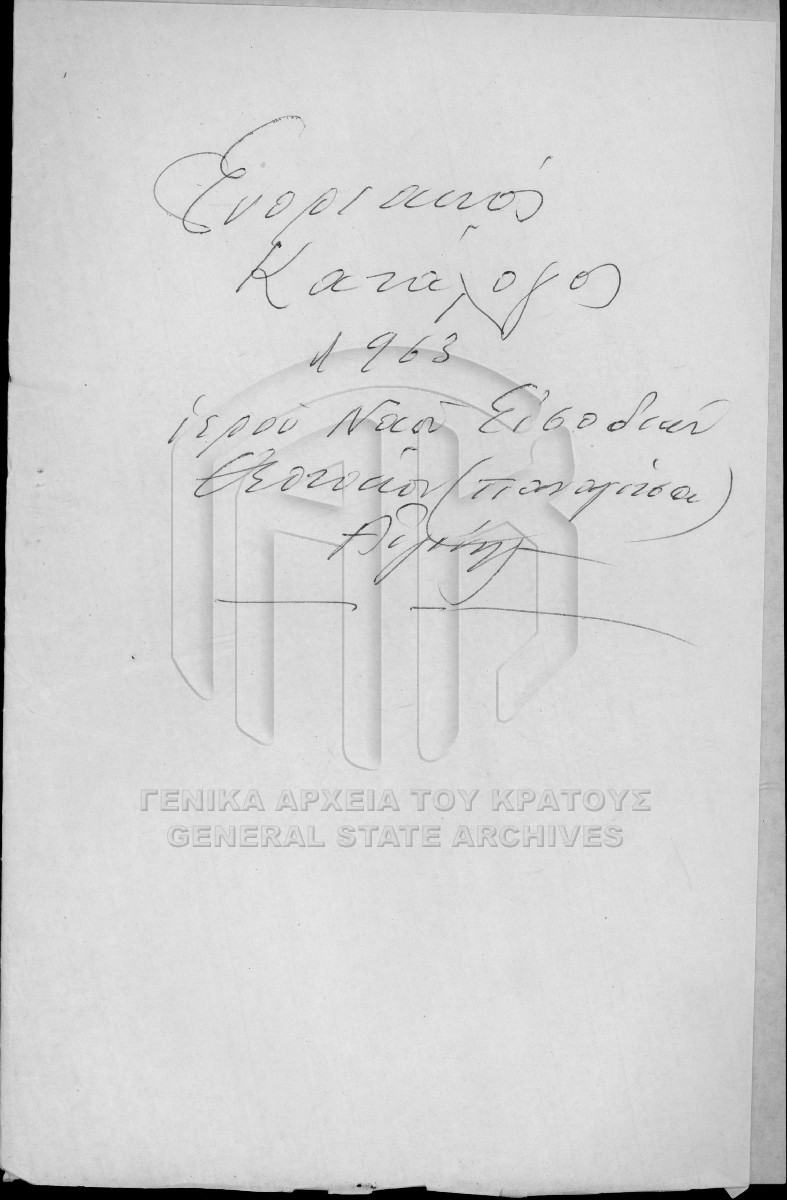 Ἐνοριακός
Κατάλογος
1963
ἱεροῦ Ναοῦ Εἰσοδίων
Θεοτόκου (Παναγίτσα)
Αἰγίνης
ΓΕΝΙΚΑ ΑΡΧΕΙΑ ΤΟΥ ΚΡΑΤΟΥΣ
GENERAL STATE ARCHIVES